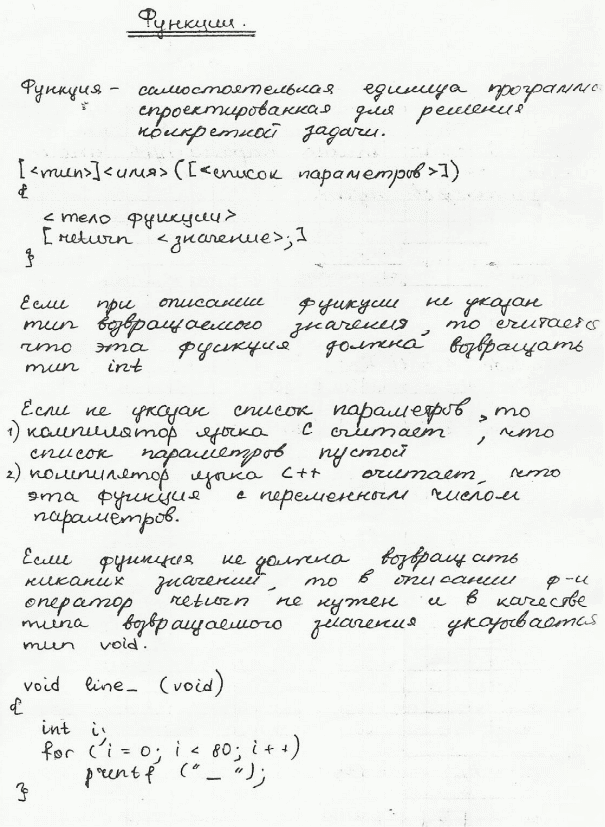 Функции.
Функция - самостоятельная единица программы
спроектированная для решения
конкретной задачи.
[<тип>]<имя>([<список параметров>])
{
<тело функции>
[return <значение>;]
}
Если при описании функции не указан
тип возвращаемого значения, то считается
что эта функция должна возвращать
тип int
Если не указан список параметров, то
1) компилятор языка C считает, что
список параметров пустой
2) компилятор языка C++ считает, что
эта функция с переменным числом
параметров.
Если функция не должна возвращать
никаких значений, то в описании ф-и
оператор return не нужен и в качестве
типа возвращаемого значения указывается
тип void.
void line_ (void)
{
int i;
for (i = 0; i < 80; i++)
printf ("_");
}